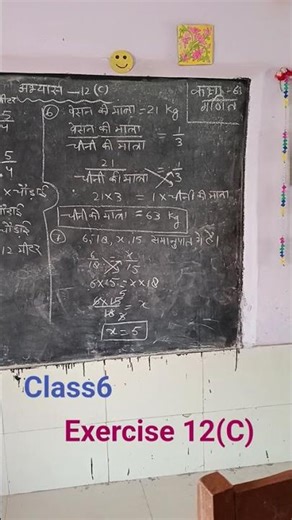 अभ्यास - 12 (C)
कक्षा - 6
गणित
5
4
5
4
12 मीटर
⑥ बेसन की मात्रा = 21 kg
बेसन की मात्रा / चीनी की मात्रा = 1/3
21 / चीनी की मात्रा = 1/3
21 x 3 = 1 x चीनी की मात्रा
चीनी की मात्रा = 63 kg
⑦ 6, 18, x, 15 समानुपात में हैं।
6/18 = x/15
6 x 15 = x x 18
6 x 15 / 18 = x
x = 5
Class6
Exercise 12(C)